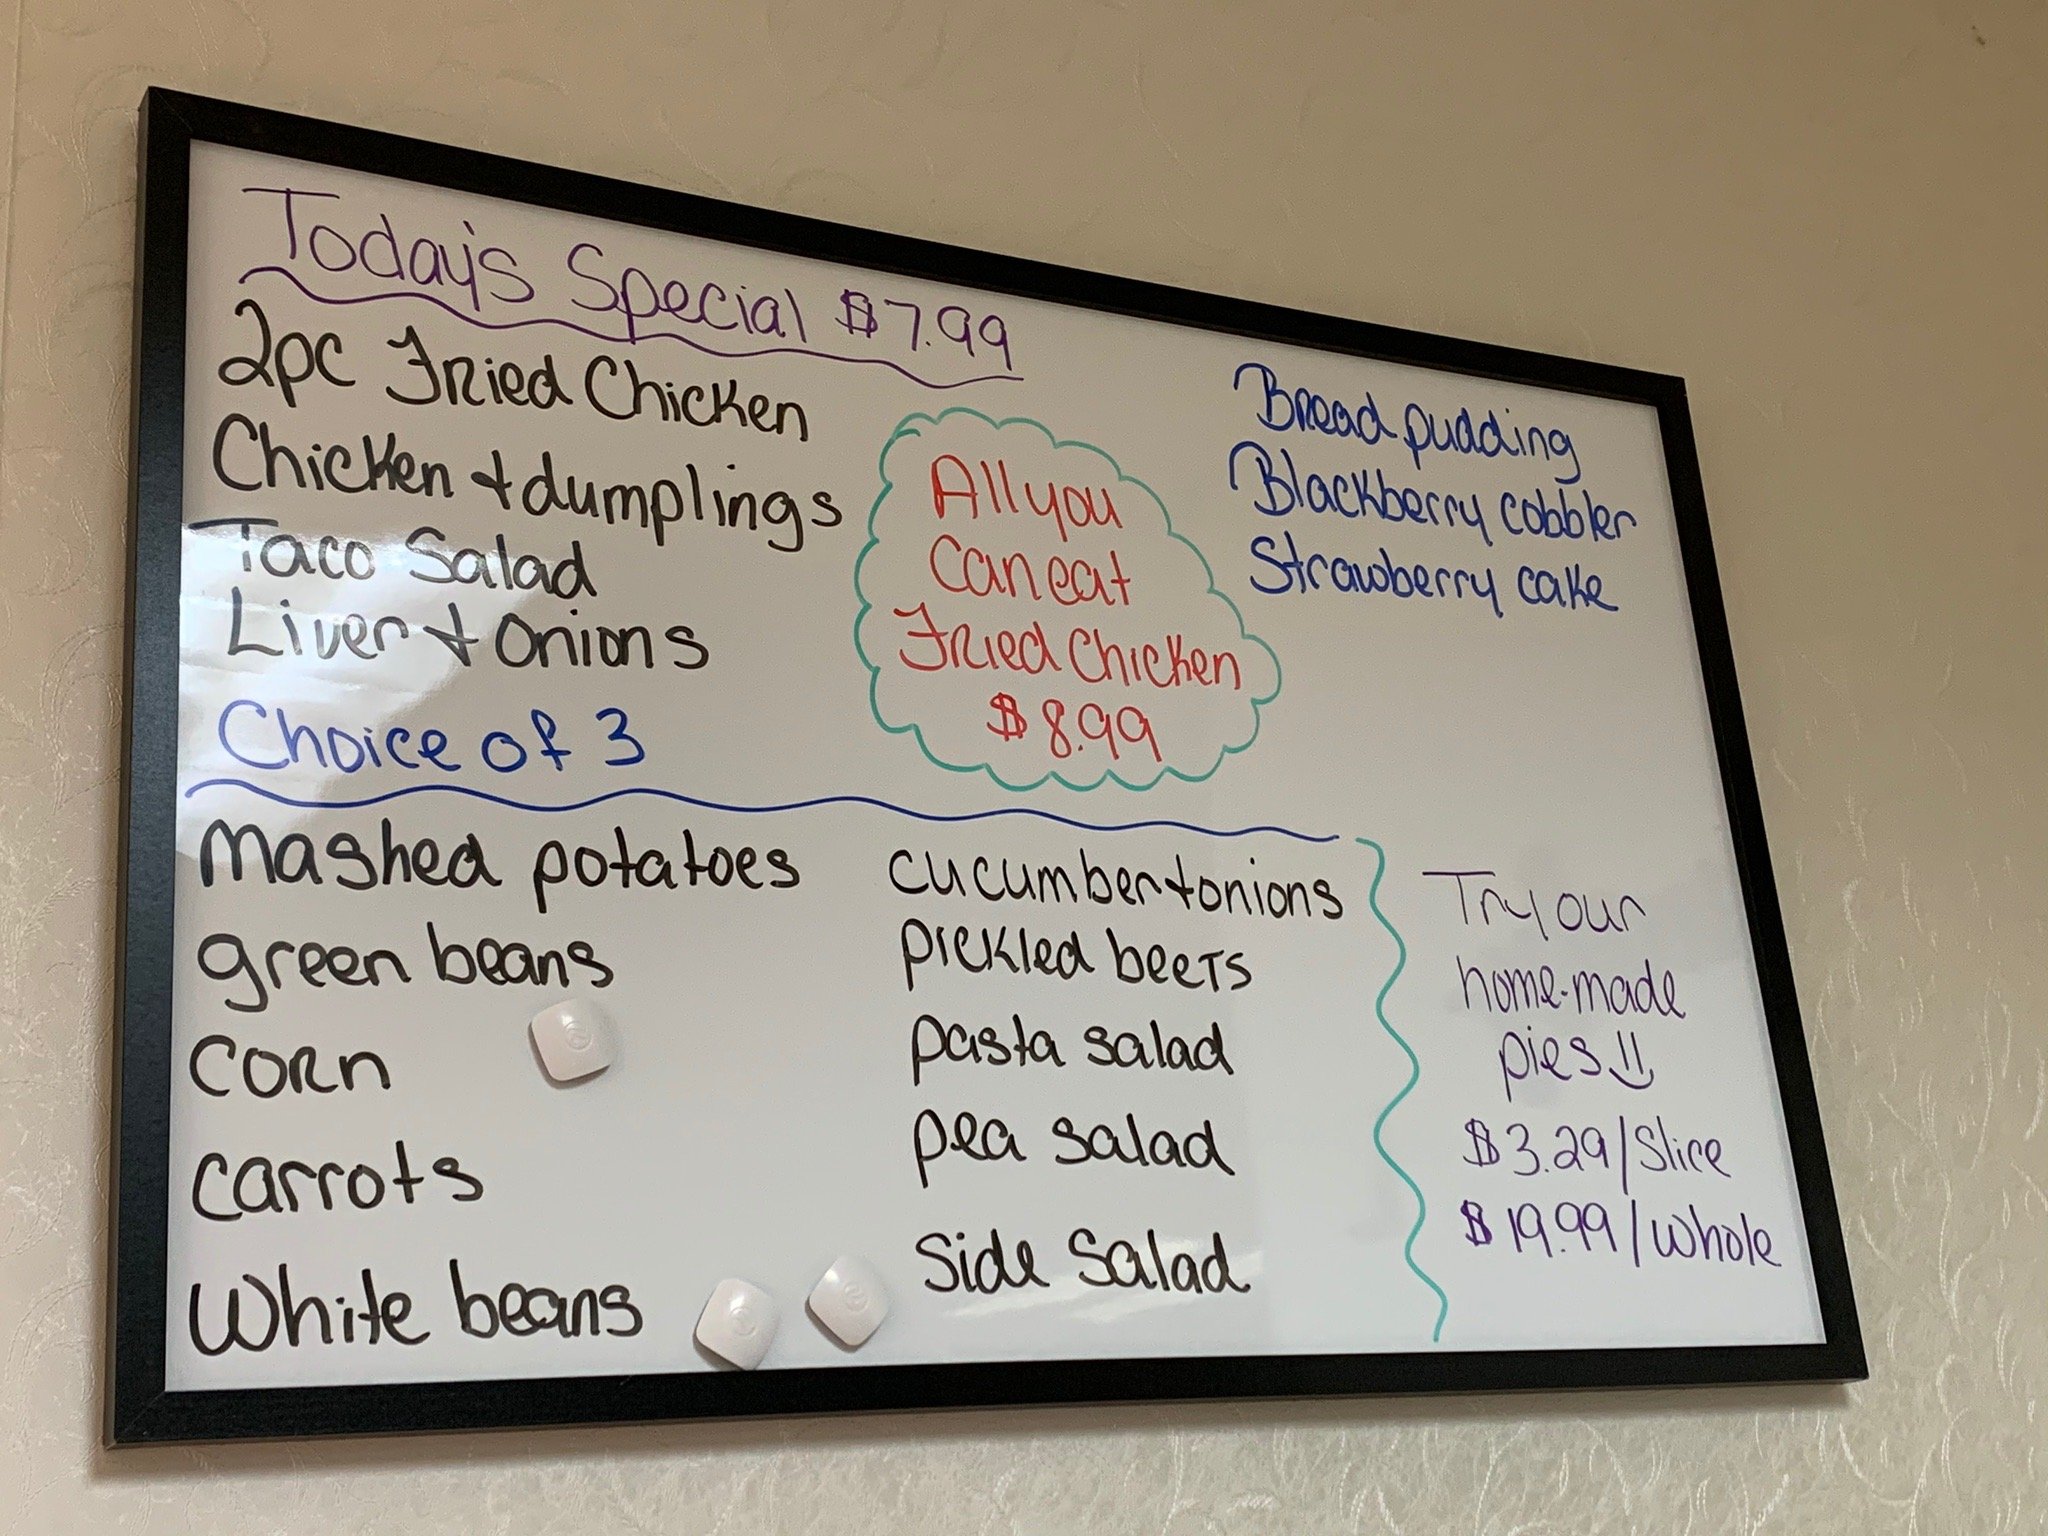 Today's Special $7.99
2pc Fried Chicken
Chicken + dumplings
Taco Salad
Liver + Onions
All you
Can eat
Fried Chicken
$8.99
Bread pudding
Blackberry cobbler
Strawberry cake
Choice of 3
mashed potatoes
green beans
corn
carrots
White beans
cucumber + onions
pickled beets
pasta salad
pea salad
Side Salad
Try our
home-made
pies
$3.29/Slice
$19.99/whole